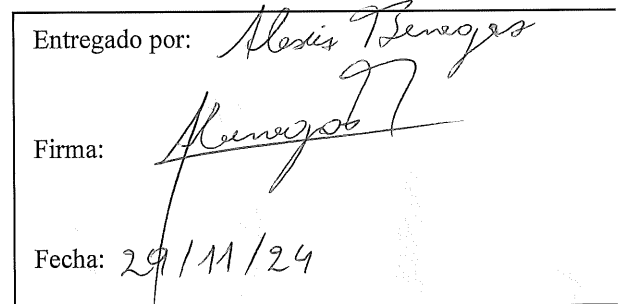 Entregado por: Alexis Benegas
Firma: ABenegas
Fecha: 29/11/24